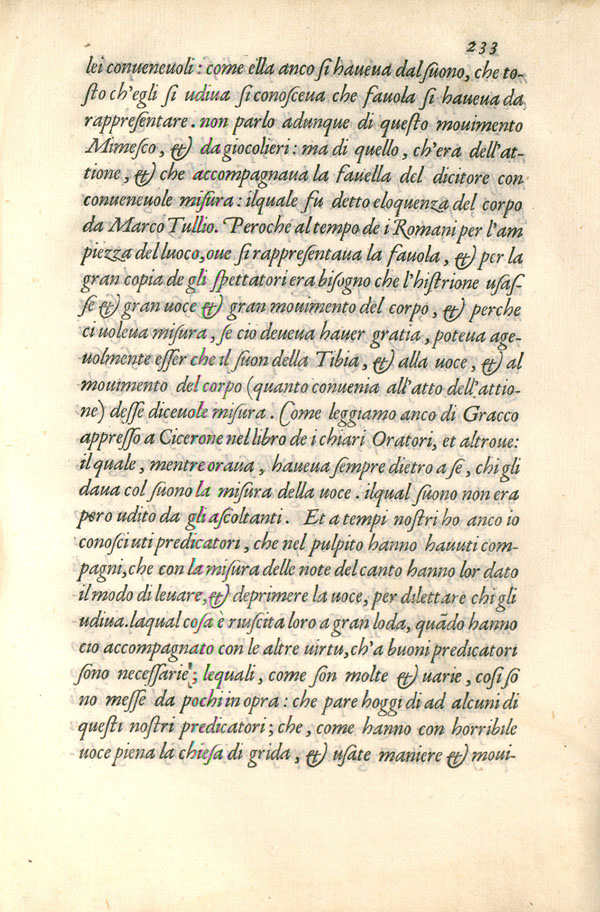 233
lei conueneuoli: come ella anco si haueua dal suono, che to-
sto ch'egli si udiua si conosceua che fauola si haueua da
rappresentare. non parlo adunque di questo mouimento
Mimesco, & da giocolieri: ma di quello, ch'era dell'at-
tione, & che accompagnaua la fauella del dicitore con
conueneuole misura: ilquale fu detto eloquenza del corpo
da Marco Tullio. Peroche al tempo de i Romani per l'am
piezza del luoco, oue si rappresentaua la fauola, & per la
gran copia de gli spettatori era bisogno che l'histrione usas-
se & gran uoce & gran mouimento del corpo, & perche
ci uoleua misura, se cio deueua hauer gratia, poteua age-
uolmente esser che il suon della Tibia, & alla uoce, & al
mouimento del corpo (quanto conuenia all'atto dell'attio-
ne) desse diceuole misura. Come leggiamo anco di Gracco
appresso a Cicerone nel libro de i chiari Oratori, et altroue:
il quale, mentre oraua, haueua sempre dietro a se, chi gli
daua col suono la misura della uoce. ilqual suono non era
pero udito da gli ascoltanti. Et a tempi nostri ho anco io
conosciuti predicatori, che nel pulpito hanno hauuti com-
pagni, che con la misura delle note del canto hanno lor dato
il modo di leuare, & deprimere la uoce, per dilettare chi gli
udiua. laqual cosa è riuscita loro a gran loda, quãdo hanno
cio accompagnato con le altre uirtu, ch'a buoni predicatori
sono necessarie; lequali, come son molte & uarie, cosi so
no messe da pochi in opra: che pare hoggi dì ad alcuni di
questi nostri predicatori; che, come hanno con horribile
uoce piena la chiesa di grida, & usate maniere & moui-